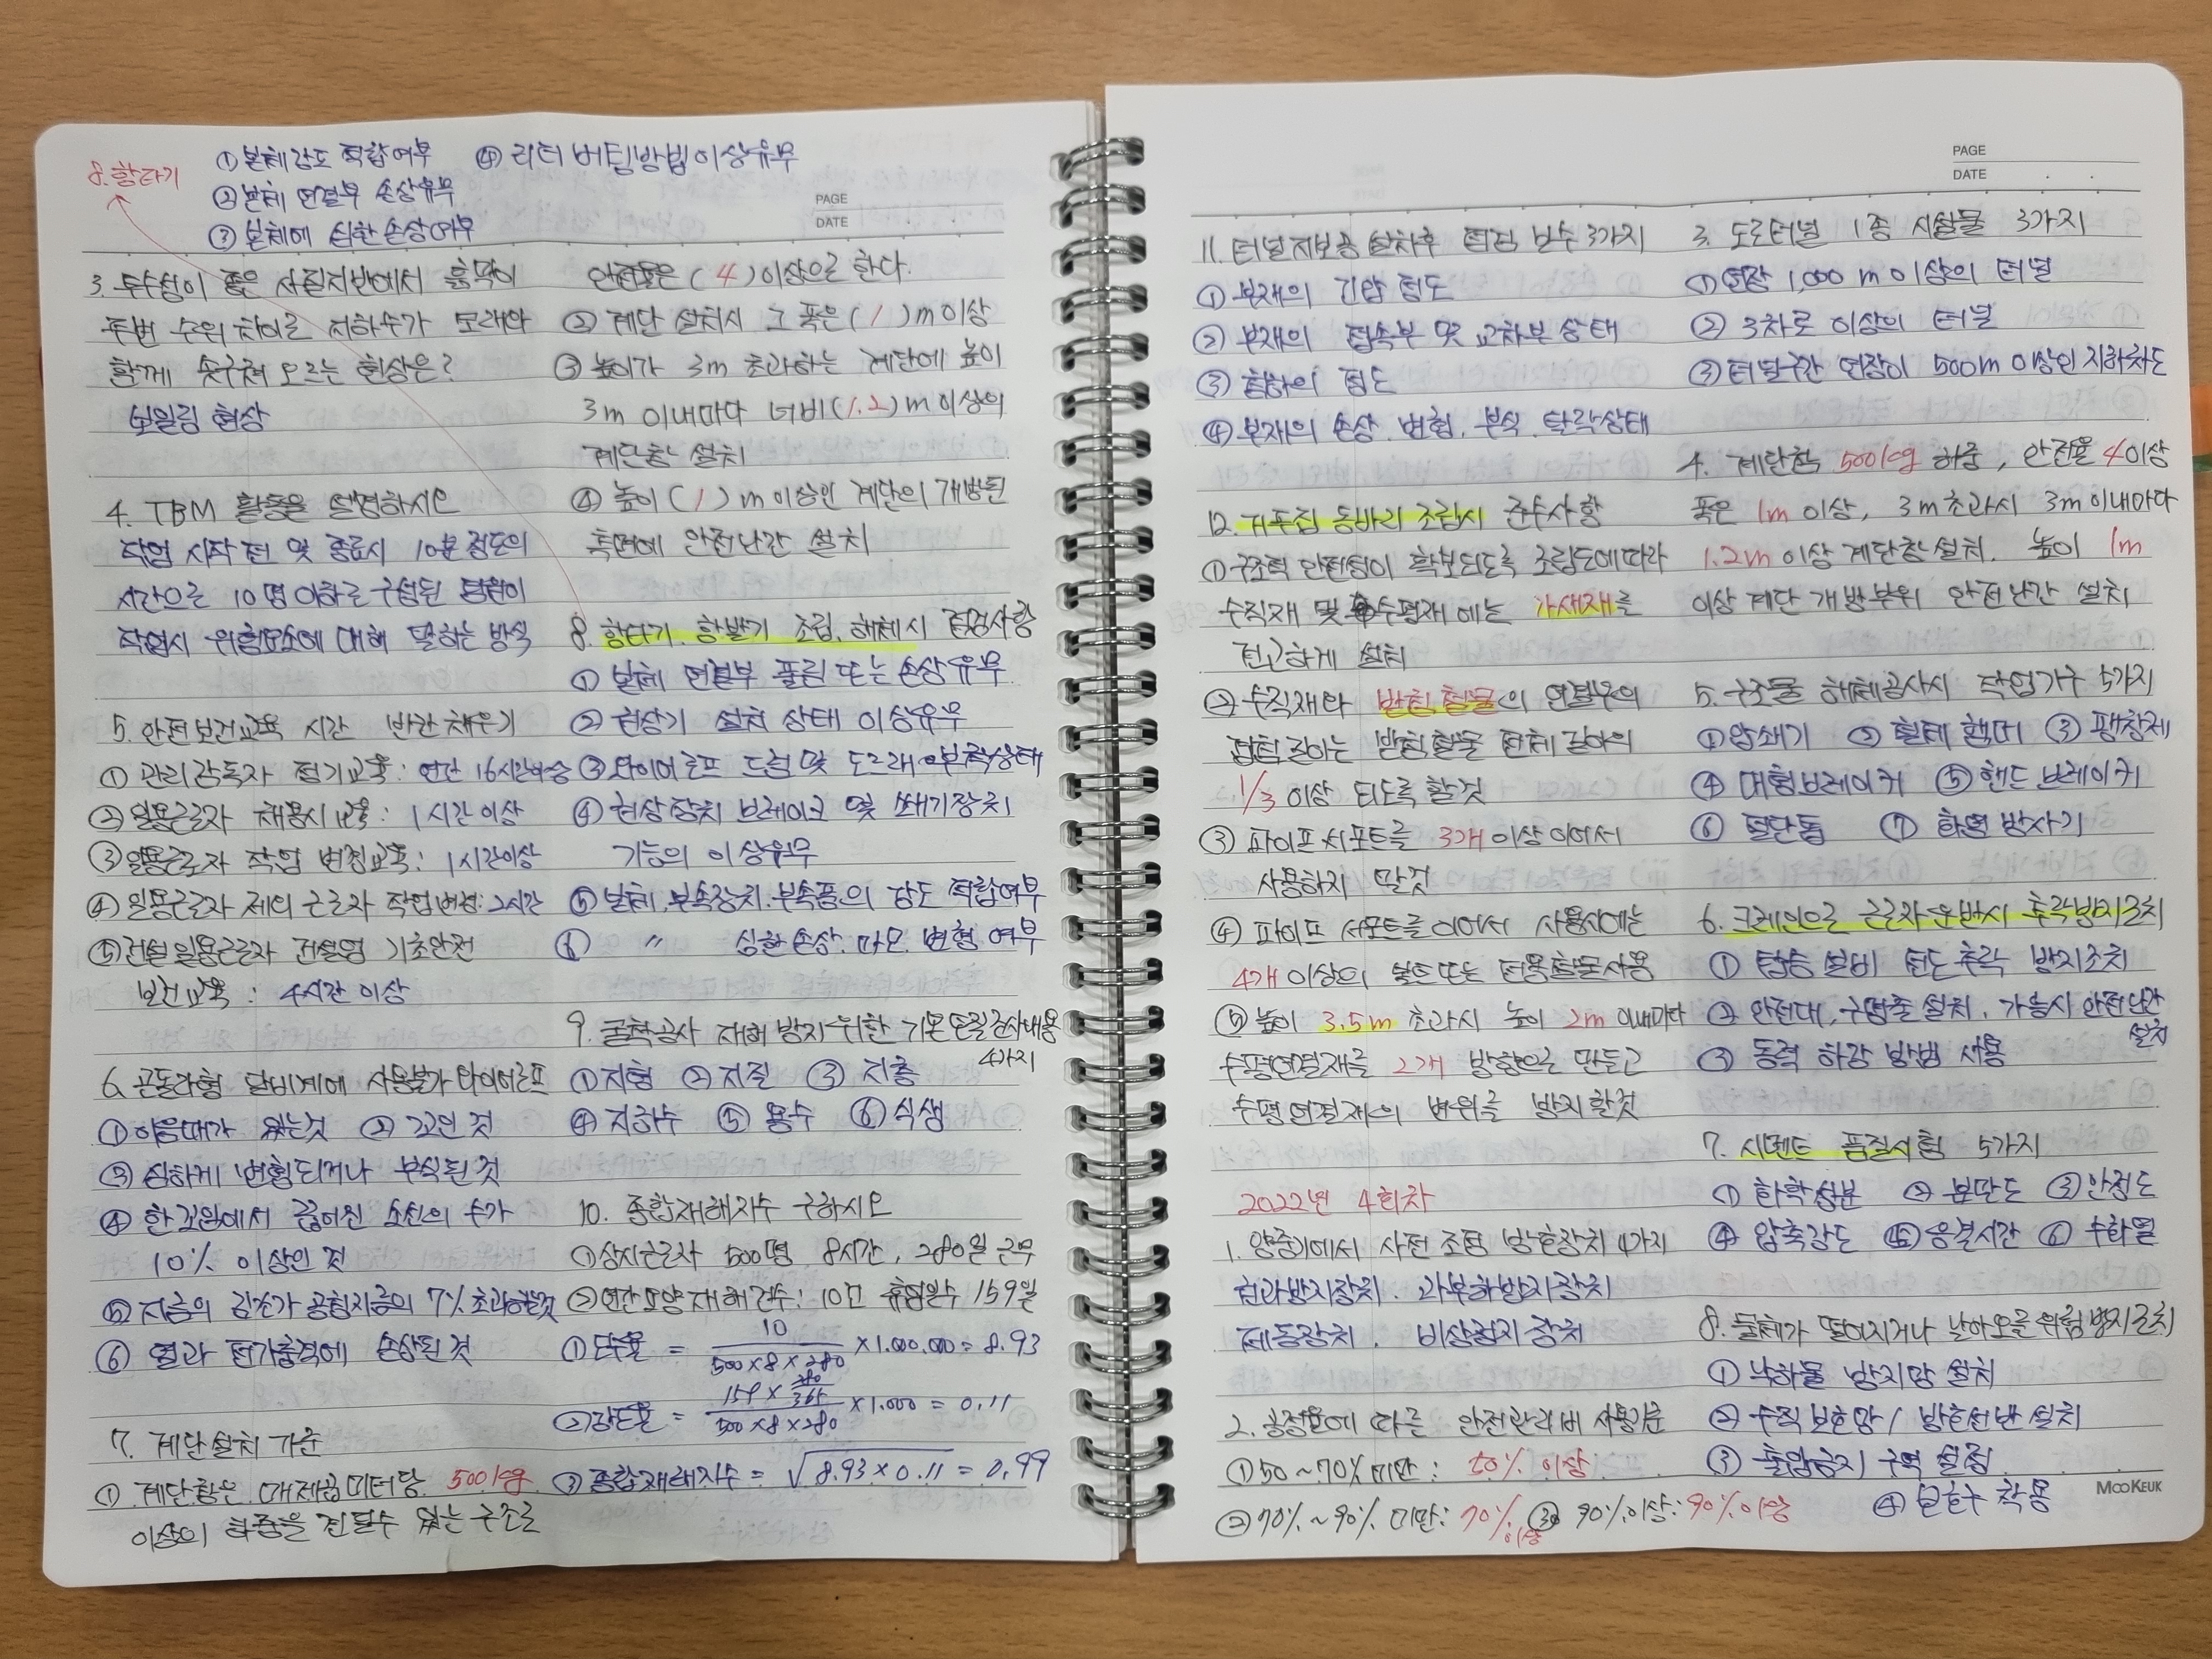 8. 항타기
① 본체강도 적합여부 ④ 리더 버팀방법 이상유무
② 본체 연결부 손상유무
③ 본체에 심한 손상여부
PAGE
DATE
3. 투수성이 좋은 사질지반에서 흙막이
주변 수위 차이로 지하수가 모래와
함께 솟구쳐 오르는 현상은?
보일링 현상
4. TBM 활동을 설명하시오
작업 시작 전 및 종료시 10분 정도의
시간으로 10명 이하로 구성된 팀원이
작업시 위험요소에 대해 말하는 방식
5. 안전보건교육 시간 빈칸 채우기
① 관리감독자 정기교육: 연간 16시간이상
② 일용근로자 채용시 교육: 1시간 이상
③ 일용근로자 작업 변경교육: 1시간이상
④ 일용근로자 제외 근로자 작업변경: 2시간
⑤ 건설일용근로자 건설업 기초안전
보건교육: 4시간 이상
6. 곤돌라형 달비계에 사용불가 와이어로프
① 이음매가 있는것 ② 꼬인 것
③ 심하게 변형되거나 부식된 것
④ 한 꼬임에서 끊어진 소선의 수가
10% 이상인 것
⑤ 지름의 감소가 공칭지름의 7% 초과한것
⑥ 열과 전기충격에 손상된 것
7. 계단설치 기준
① 계단참은 매제곱미터당 500kg
이상의 하중을 견딜수 있는 구조로
안전율은 (4) 이상으로 한다.
② 계단 설치시 그 폭은 (1)m 이상
③ 높이가 3m 초과하는 계단에 높이
3m 이내마다 너비(1.2)m 이상의
계단참 설치
④ 높이 (1)m 이상인 계단의 개방된
측면에 안전난간 설치
8. 항타기, 항발기 조립, 해체시 점검사항
① 본체 연결부 풀림 또는 손상유무
② 권상기 설치 상태 이상유무
③ 와이어로프 드럼 및 도르래 부착상태
④ 권상장치 브레이크 및 쐐기장치
기능의 이상유무
⑤ 본체, 부속장치, 부속품의 강도 적합여부
⑥ 〃 심한 손상. 마모. 변형 여부
9. 굴착공사 재해 방지 위한 기본 토질조사내용
4가지
① 지형 ② 지질 ③ 지층
④ 지하수 ⑤ 용수 ⑥ 식생
10. 종합재해지수 구하시오
① 상시근로자 500명 8시간, 280일 근무
② 연간 요양 재해건수: 10건 휴업일수 159일
① 도수율 = 10 / 500×8×280 ×1.000.000 = 8.93
② 강도율 = 159 × 280/365 / 500×8×280 ×1.000 = 0.11
③ 종합재해지수 = √8.93×0.11 = 0.99
PAGE
DATE . .
11. 터널지보공 설치후 점검 보수 3가지
① 부재의 긴압 정도
② 부재의 접속부 및 교차부 상태
③ 침하의 정도
④ 부재의 손상. 변형. 부식. 탈락상태
12. 거푸집 동바리 조립시 준수사항
① 구조적 안전성이 확보되도록 조립도에 따라
수직재 및 수평재에는 가새재를
견고하게 설치
② 수직재와 받침철물의 연결부의
겹침길이는 받침철물 전체 길이의
1/3 이상 되도록 할것
③ 파이프 서포트를 3개 이상 이어서
사용하지 말것
④ 파이프 서포트를 이어서 사용시에는
4개 이상의 볼트 또는 전용철물 사용
⑤ 높이 3.5m 초과시 높이 2m 이내마다
수평연결재를 2개 방향으로 만들고
수평연결재의 변위를 방지할것
2022년 4회차
1. 양중기에서 사전 조정 방호장치 4가지
권과방지장치. 과부하방지장치
제동장치. 비상정지장치
2. 공정율에 따른 안전관리비 사용기준
① 50~70% 미만: 50% 이상
② 70%~90% 미만: 70% 이상 ③ 90%이상: 90% 이상
3. 도로터널 1종 시설물 3가지
① 연장 1,000m 이상의 터널
② 3차로 이상의 터널
③ 터널구간 연장이 500m 이상인 지하차도
4. 계단참 500kg 하중, 안전율 4이상
폭은 1m 이상, 3m 초과시 3m 이내마다
1.2m 이상 계단참 설치. 높이 1m
이상 계단 개방부위 안전난간 설치
5. 구조물 해체공사시 작업기구 5가지
① 압쇄기 ② 철제 햄머 ③ 팽창제
④ 대형브레이커 ⑤ 핸드 브레이커
⑥ 절단톱 ⑦ 화염 방사기
6. 크레인으로 근로자 운반시 추락방지조치
① 탑승설비 전도 추락 방지조치
② 안전대, 구명줄 설치, 가능시 안전난간
설치
③ 동력 하강 방법 사용
7. 시멘트 품질시험 5가지
① 화학성분 ② 분말도 ③ 안정도
④ 압축강도 ⑤ 응결시간 ⑥ 수화열
8. 물체가 떨어지거나 날아오를 위험 방지조치
① 낙하물 방지망 설치
② 수직 보호망/방호선반 설치
③ 출입금지 구역 설정
④ 보호구 착용
MOOKEUK